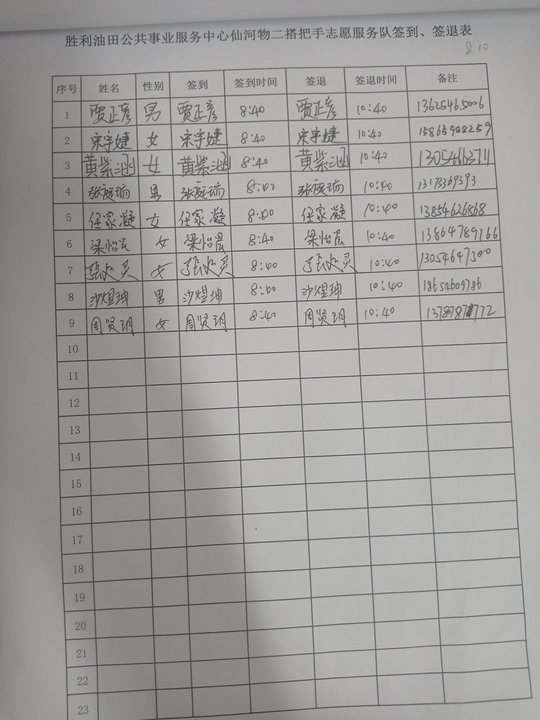 胜利油田公共事业服务中心仙河物二搭把手志愿服务队签到、签退表
8 10
序号 姓名 性别 签到 签到时间 签退 签退时间 备注
1 贾正彦 男 贾正彦 8:40 贾正彦 10:40 13625465006
2 宋宇婕 女 宋宇婕 8:40 宋宇婕 10:40 15865908259
3 黄紫涵 女 黄紫涵 8:40 黄紫涵 10:40
4 张庭瑞 男 张庭瑞 8:40 张庭瑞 10:40
5 任家凝 女 任家凝 8:40 任家凝 10:40 13854626868
6 梁怡宸 女 梁怡宸 8:40 梁怡宸 10:40 13864789166
7 女 8:40 10:40 13054647500
8 沙煜珅 男 沙煜珅 8:40 沙煜珅 10:40 18654609786
9 周贤玥 女 周贤玥 8:40 周贤玥 10:40
10
11
12
13
14
15
16
17
18
19
20
21
22
23